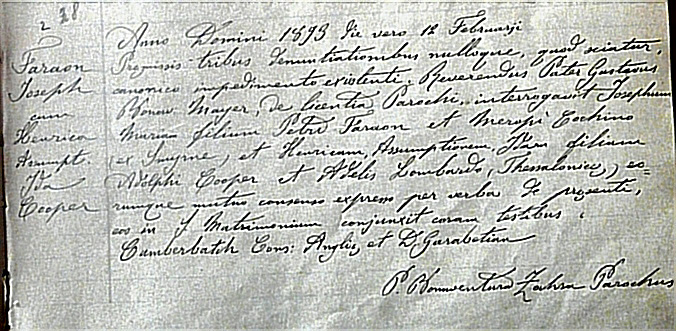 2 28
Faraon
Joseph
cum
Henrica
Assumpt
Ida
Cooper
Anno Domini 1893 die vero 12 Februarji
Premissis tribus denuntiationibus nulloque, quod sciatur,
canonico impedimento existenti. Reverendus Pater Gustavus
Bonav. Mayer, de licentia Parochi, interrogavit Josephum
Mariam filium Petri Faraon et Meropi Cochino
(ex Smyrne) et Henricam, Assumptionem, Idam filiam
Adolphi Cooper et Adelis Lombardo, (Thessalonice) eo-
rumque mutuo consensu expresso per verba de presenti,
eos in Matrimonium conjunxit coram testibus:
Cumberbatch Cons: Anglie, et D. Garabetian
P. Bonaventura Zahra Parochus